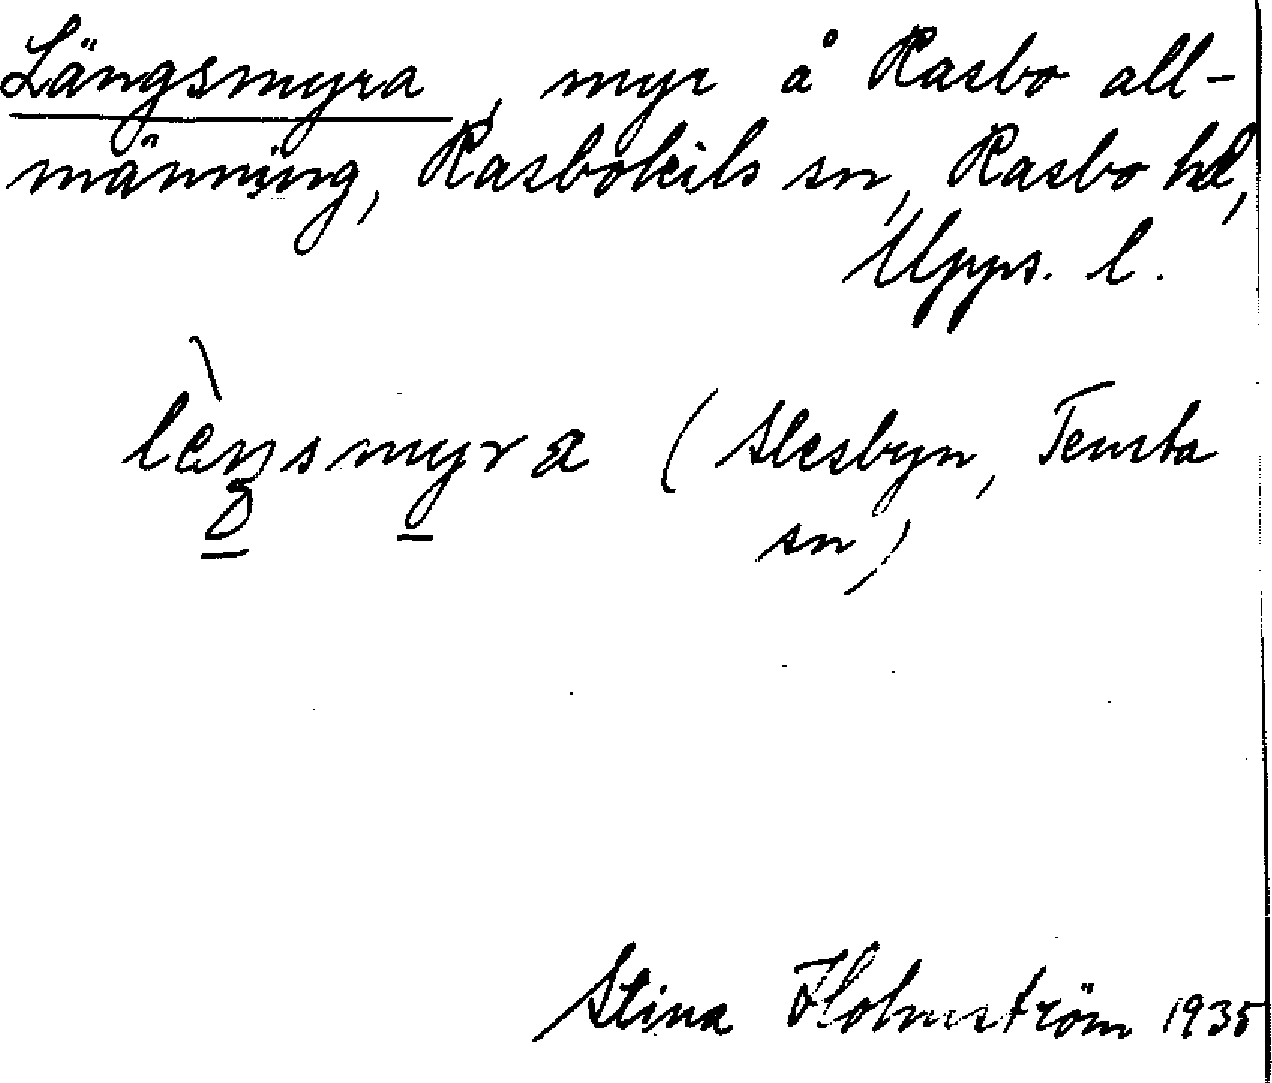 Längsmyra, myr å Rasbo all-
männing, Rasbokils sn, Rasbo hd,
Upps. l.
lèŋsmyra (Slesbyn, Tensta
sn)
Stina Holmström 1935